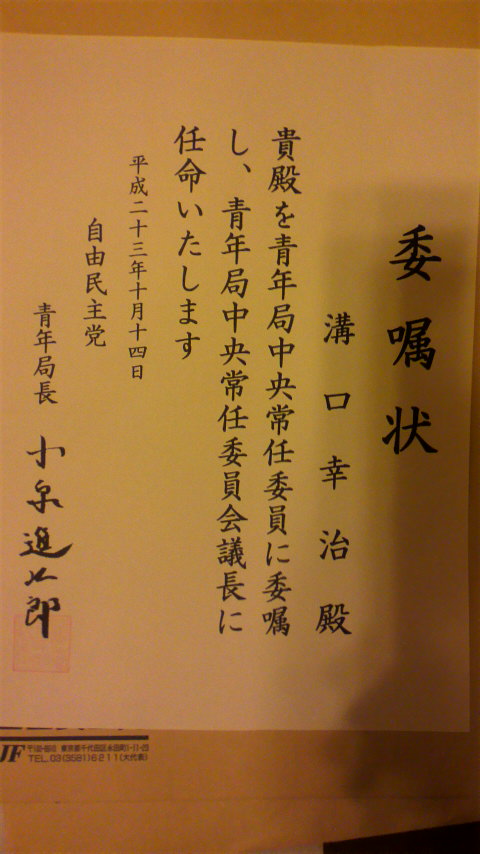 委嘱状
溝口幸治殿
貴殿を青年局中央常任委員に委嘱
し、青年局中央常任委員会議長に
任命いたします
平成二十三年十月十四日
自由民主党
青年局長 小泉進次郎
JF
東京都千代田区永田町1-11-23
TEL.03(3581)6211(大代表)